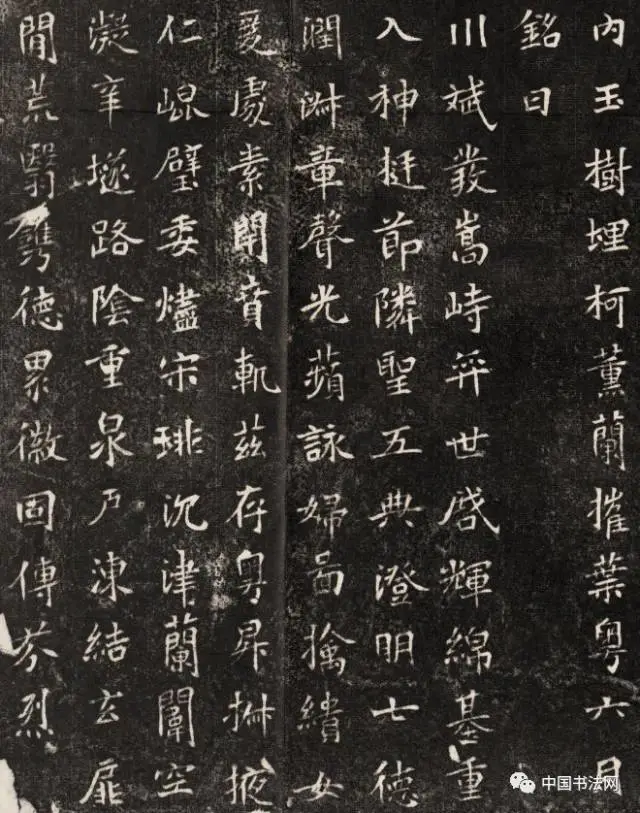 内玉樹埋柯薰蘭摧葉粤六月
銘曰
川斌發嵩峙弈世啓輝綿基重
入神挺節隣聖五典澄明七德
潤淑章聲光蘋詠婦啚摛繢女
爰處素閈賁軌茲存粤昇掖
仁崐璧委燼宋琲沉津蘭闈空
凝路陰重泉戸凍結玄扉
閒荒翳鐫德累徽固傳芬烈
中国书法网